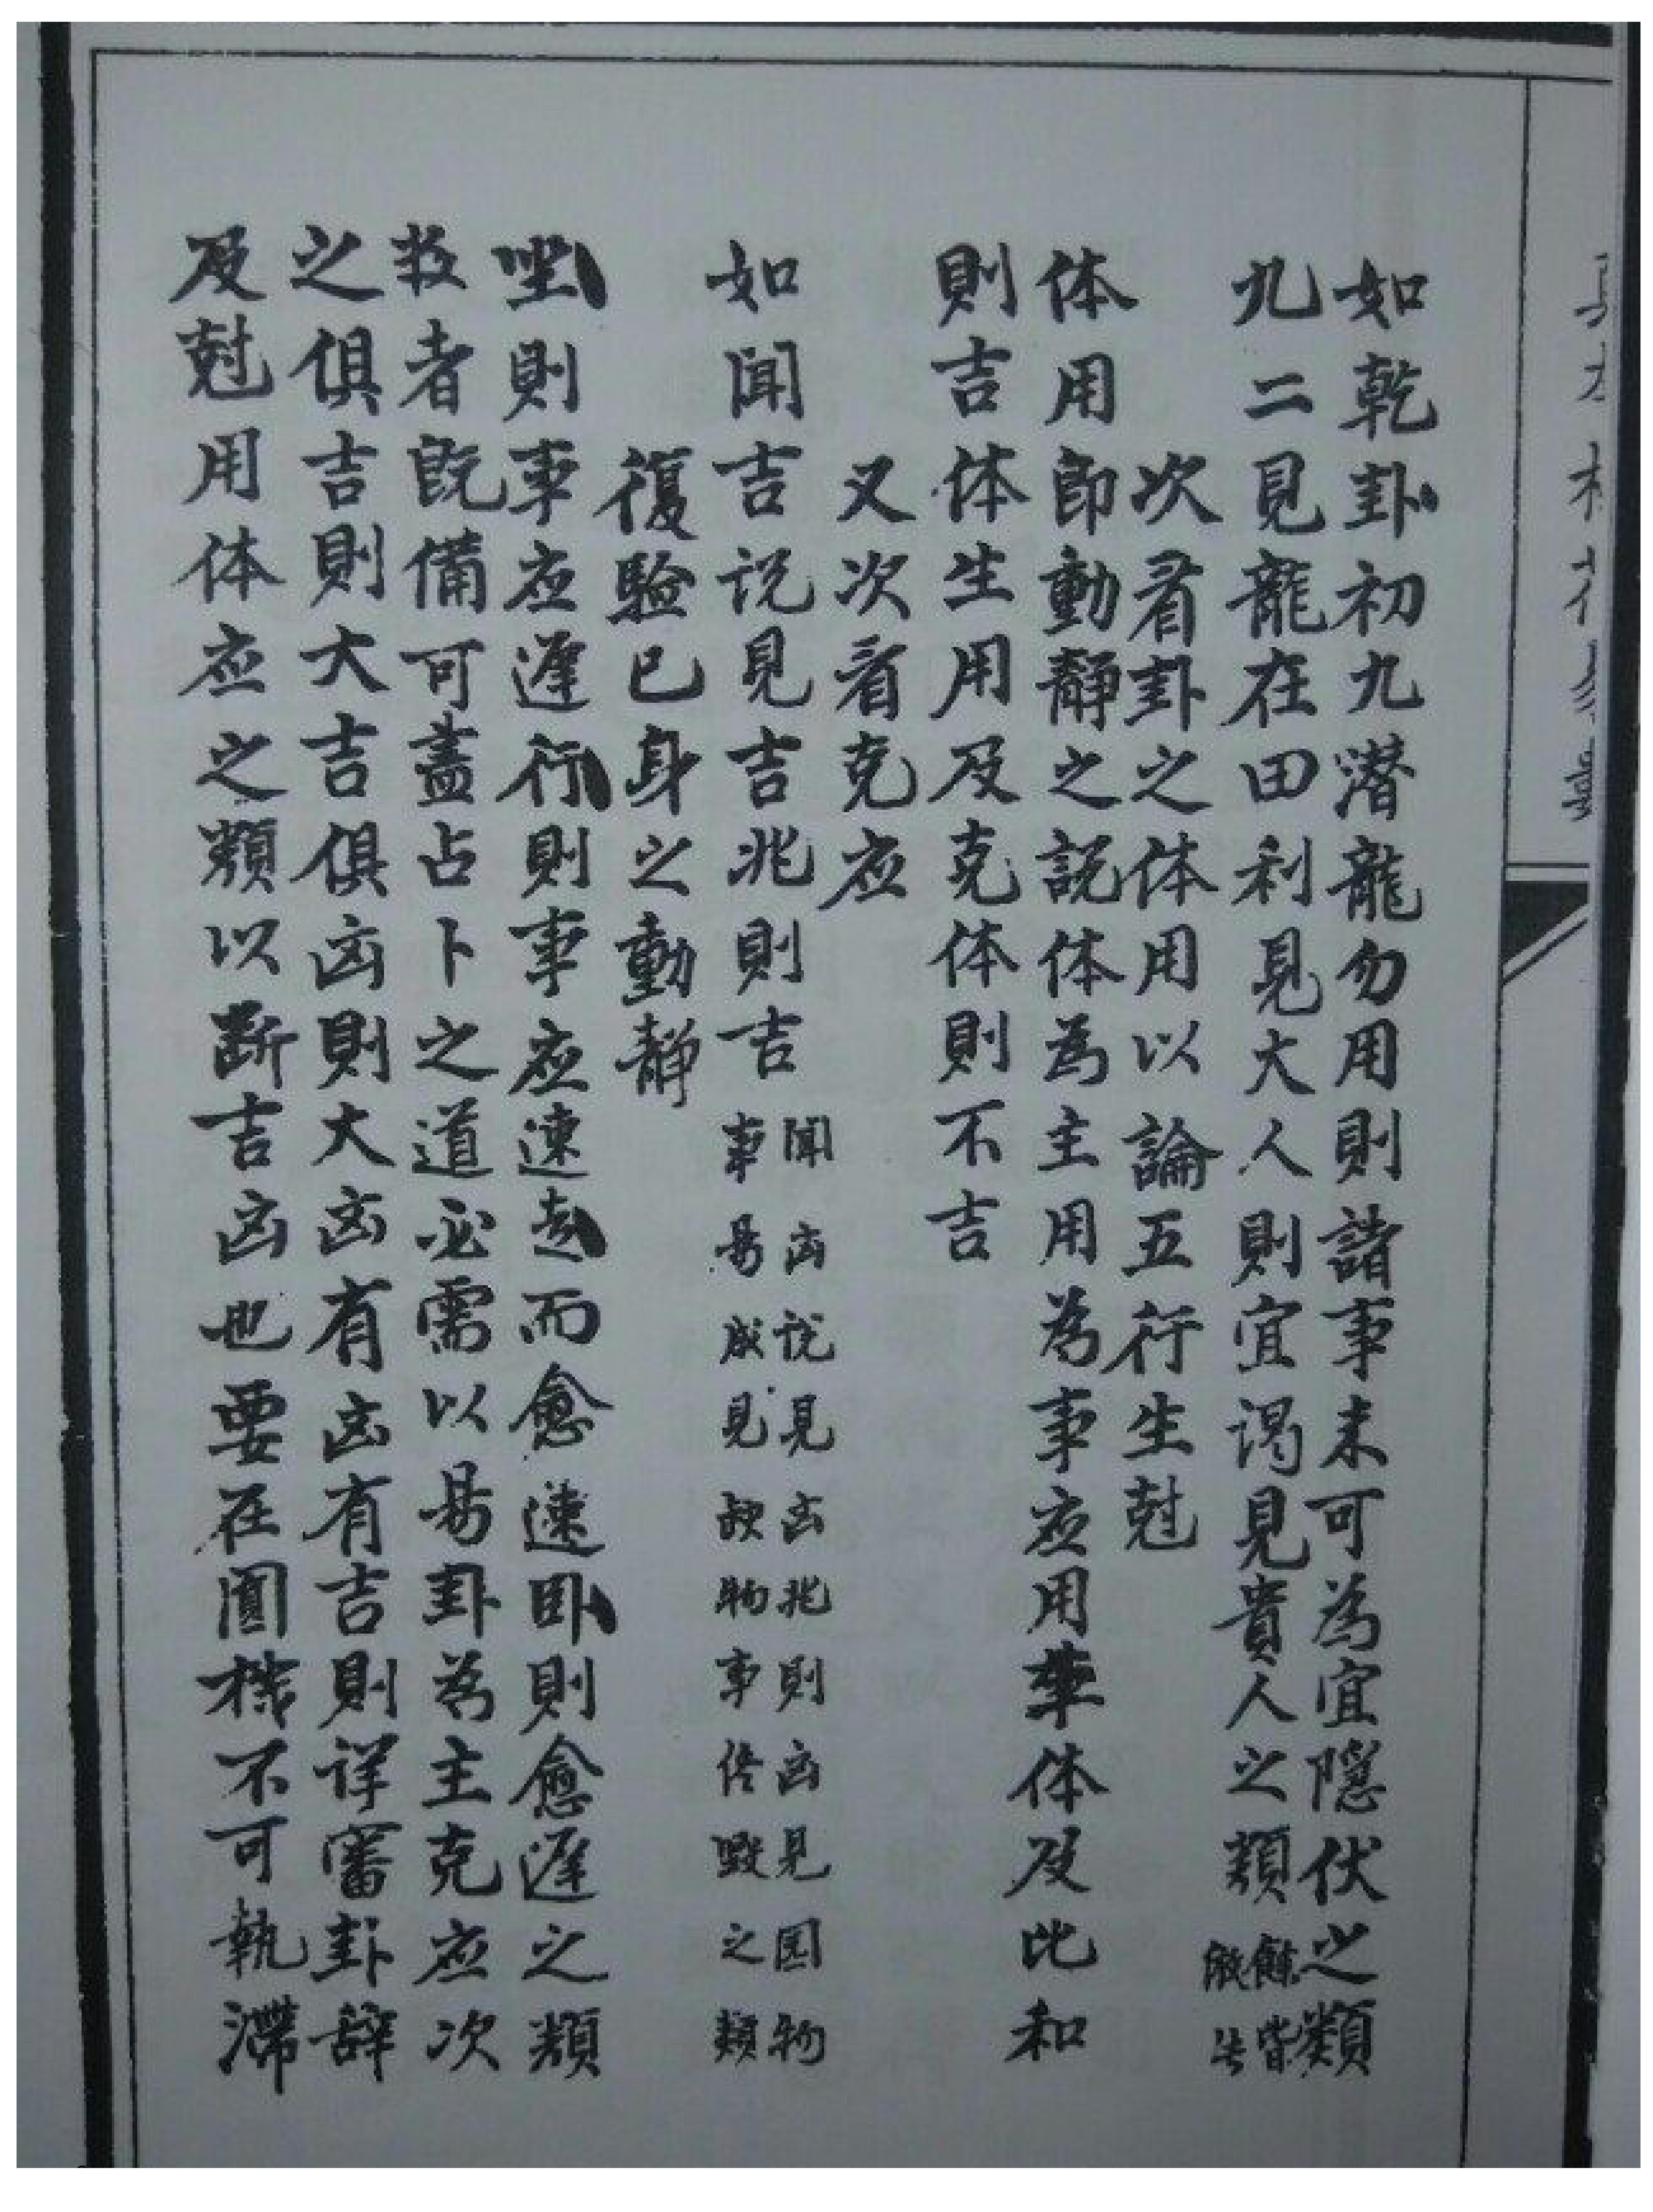 如乾卦初九潜龍勿用則諸事未可為宜隱伏之類
九二見龍在田利見大人則宜谒見貴人之類餘皆倣此
次看卦之体用以論五行生尅
体用即動静之説体為主用為事应用生体及比和
則吉体生用及克体則不吉
又次看克应
如闻吉说見吉兆則吉闻凶说見凶兆則凶見圆物事易成見缺物事终毀之類
復驗已身之動静
坐則事应遲行則事应速走而愈速卧則愈遲之類
数者既備可盡占卜之道必需以易卦為主克应次
之俱吉則大吉俱凶則大凶有凶有吉則详審卦辞
及尅用体应之類以断吉凶也要在圓機不可執滯